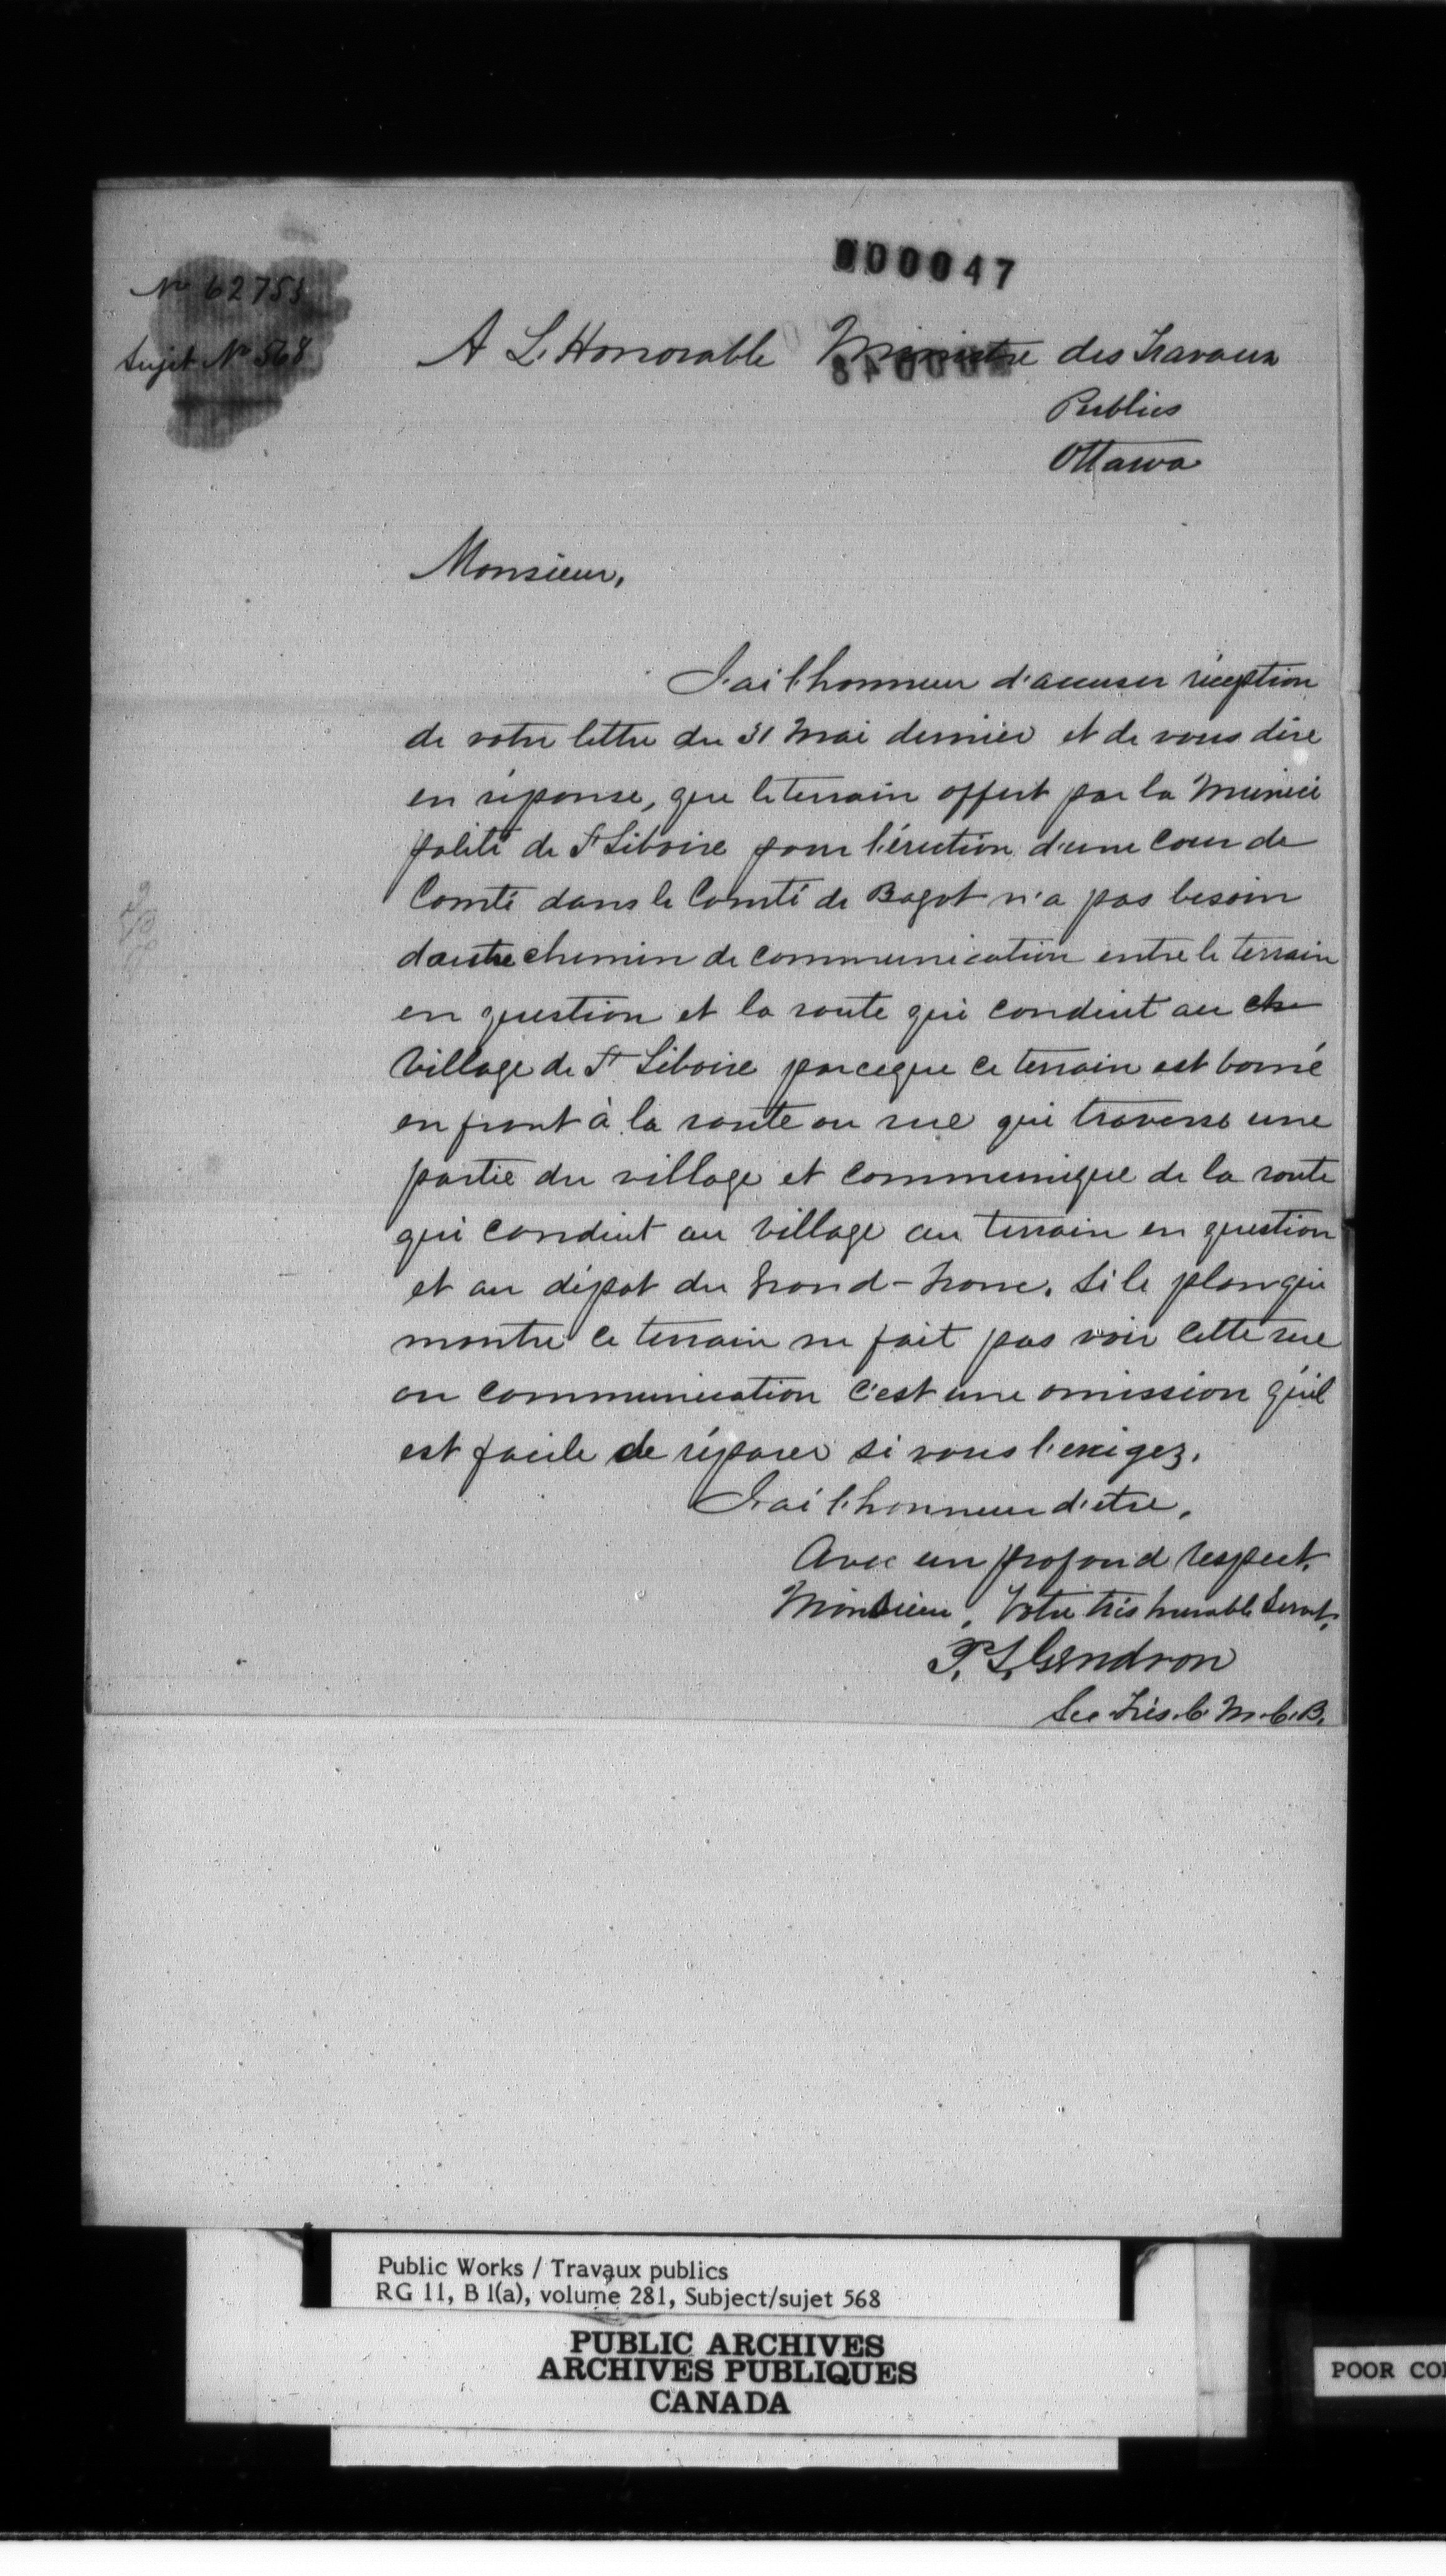 000047
No 62753
Sujet No 568
A L'Honorable Ministre des Travaux
Publics
Ottawa
Monsieur,
J'ai l'honneur d'accuser réception
de votre lettre du 31 Mai dernier et de vous dire
en réponse, que le terrain offert par la Munici
palité de St Liboire pour l'érection d'une Cour de
Comté dans le Comté de Bagot n'a pas besoin
d'autre chemin de communication entre le terrain
en question et la route qui conduit au che
Village de St Liboire parceque ce terrain est borné
en front à la route ou rue qui traverse une
partie du village et communique de la route
qui conduit au Village au terrain en question
et au dépot du Grand-Tronc. Si le plan qui
montre ce terrain ne fait pas voir cette rue
ou communication c'est une omission qu'il
est facile de réparer si vous l'exigez.
J'ai l'honneur d'etre,
Avec un profond respect,
Monsieur, Votre très humble Servt,
P. S. Gendron
Sec Trés. C. M. C. B.
Public Works / Travaux publics
RG 11, B 1(a), volume 281, Subject/sujet 568
PUBLIC ARCHIVES
ARCHIVES PUBLIQUES
CANADA
POOR CO